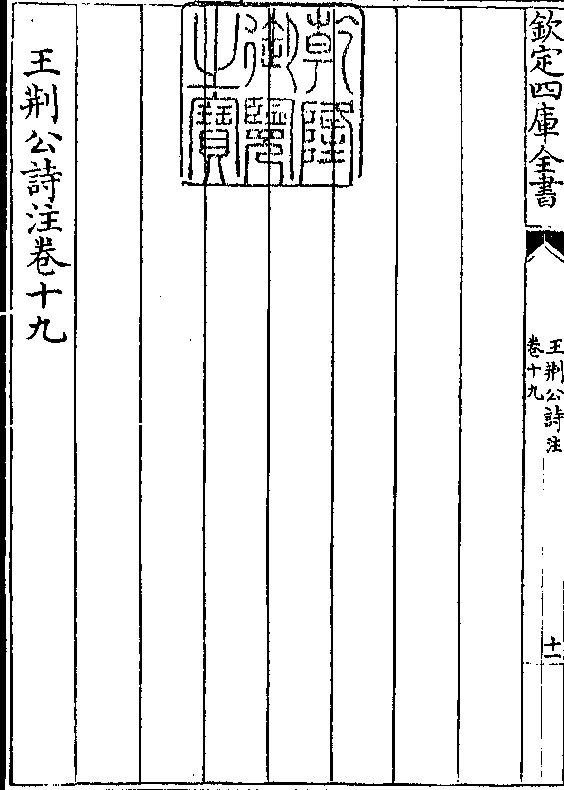 欽定四庫全書
王荆公詩注
卷十九
十一
乾隆
御覽
之寶
王荆公詩注卷十九